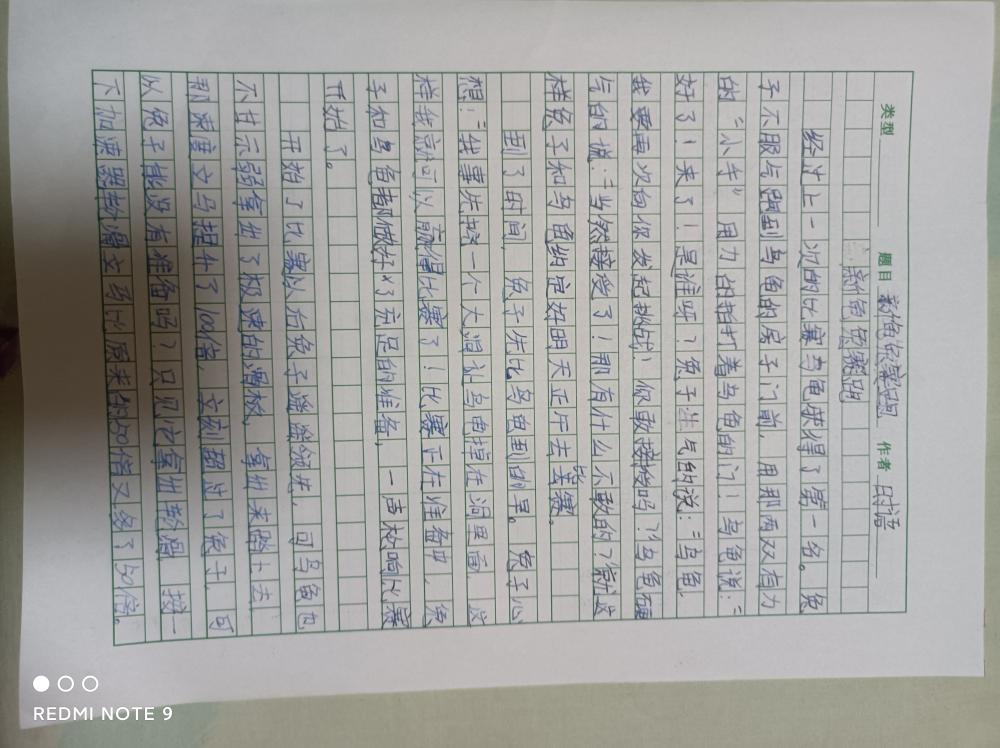 类型 题目 新龟兔赛跑 作者 日语
新龟兔赛跑
经过上一次的比赛乌龟获得了第一名。兔
子不服气跑到乌龟的房子门前，用那两双有力
的“小手”用力的拍打着乌龟的门！乌龟说：“
好了！来了！是谁呀？兔子生气的说：“乌龟，
我要再次向你发起挑战！你敢接受吗？”乌龟硬
气的说：“当然接受了！那有什么不敢的？”就这
样兔子和乌龟约定好明天正午去比赛。
到了时间，兔子先比乌龟到的早。兔子心
想：“我事先挖一个大洞让乌龟掉在洞里面，这
样我就可以赢得比赛了！比赛正在准备中，兔
子和乌龟都做好了充足的准备，一声枪响比赛
开始了。
开始了比赛以后兔子遥遥领先，可乌龟也
不甘示弱拿出了极速的滑板，拿出来踏上去，
那速度立马提升了100倍，立刻超过了兔子，可
以兔子能没有准备吗？只见它拿出轮滑，按一
下加速器轮滑立马比原来的50倍又多了50倍。
REDMI NOTE 9